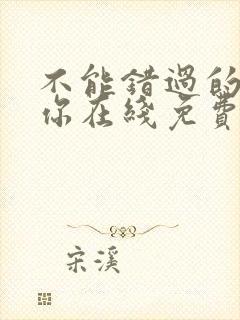 不能错过的
你在线免费
宋溪